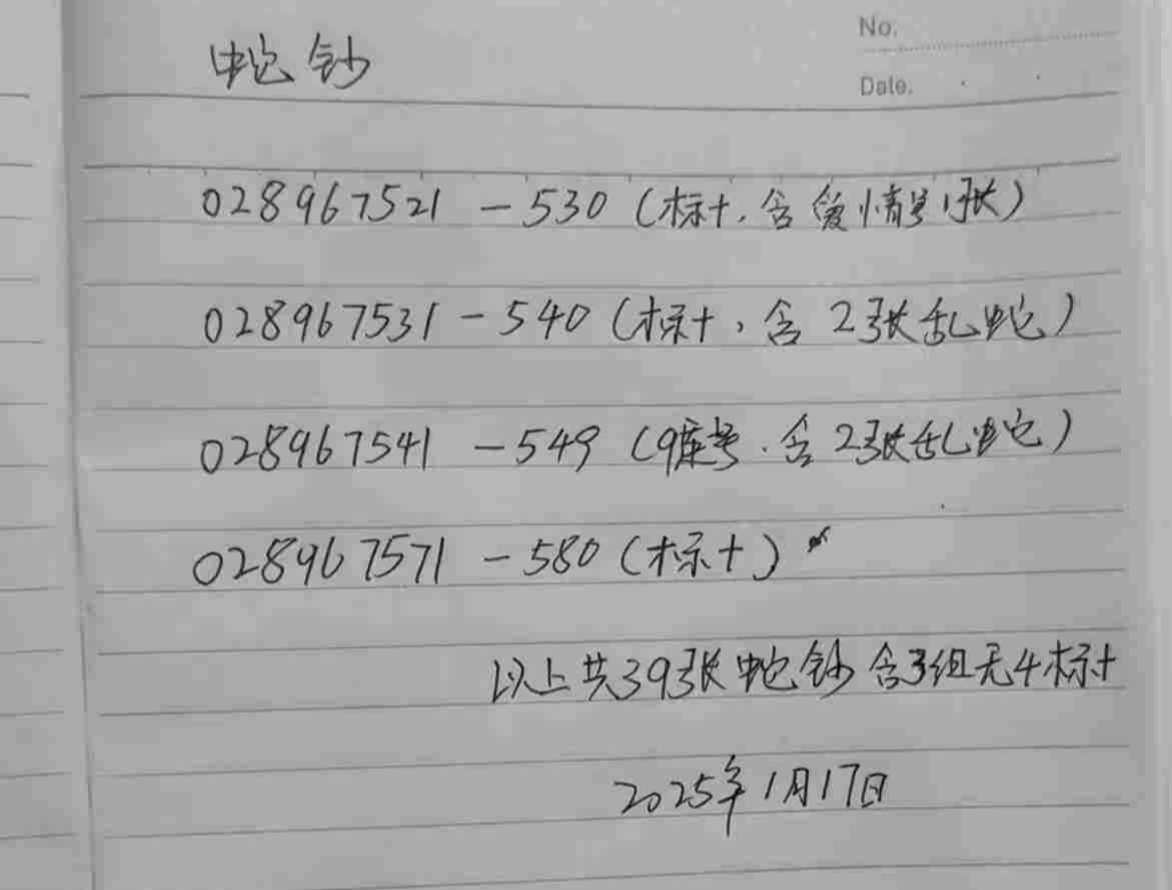 No.
蛇钞
Date.
028967521 - 530 (标十, 含爱情号1张)
028967531 - 540 (标十, 含2张乱蛇)
028967541 - 549 (9连号. 含2张乱蛇)
028967571 - 580 (标十)
以上共39张蛇钞 含3组无4标十
2025年1月17日